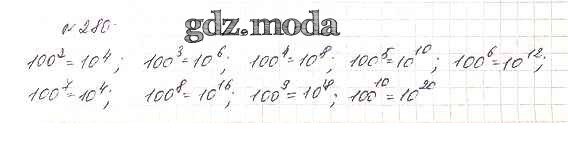 № 280.
gdz.moda
100² = 10⁴; 100³ = 10⁶; 100⁴ = 10⁸; 100⁵ = 10¹⁰; 100⁶ = 10¹²;
100⁷ = 10⁴; 100⁸ = 10¹⁶; 100⁹ = 10¹⁸; 100¹⁰ = 10²⁰